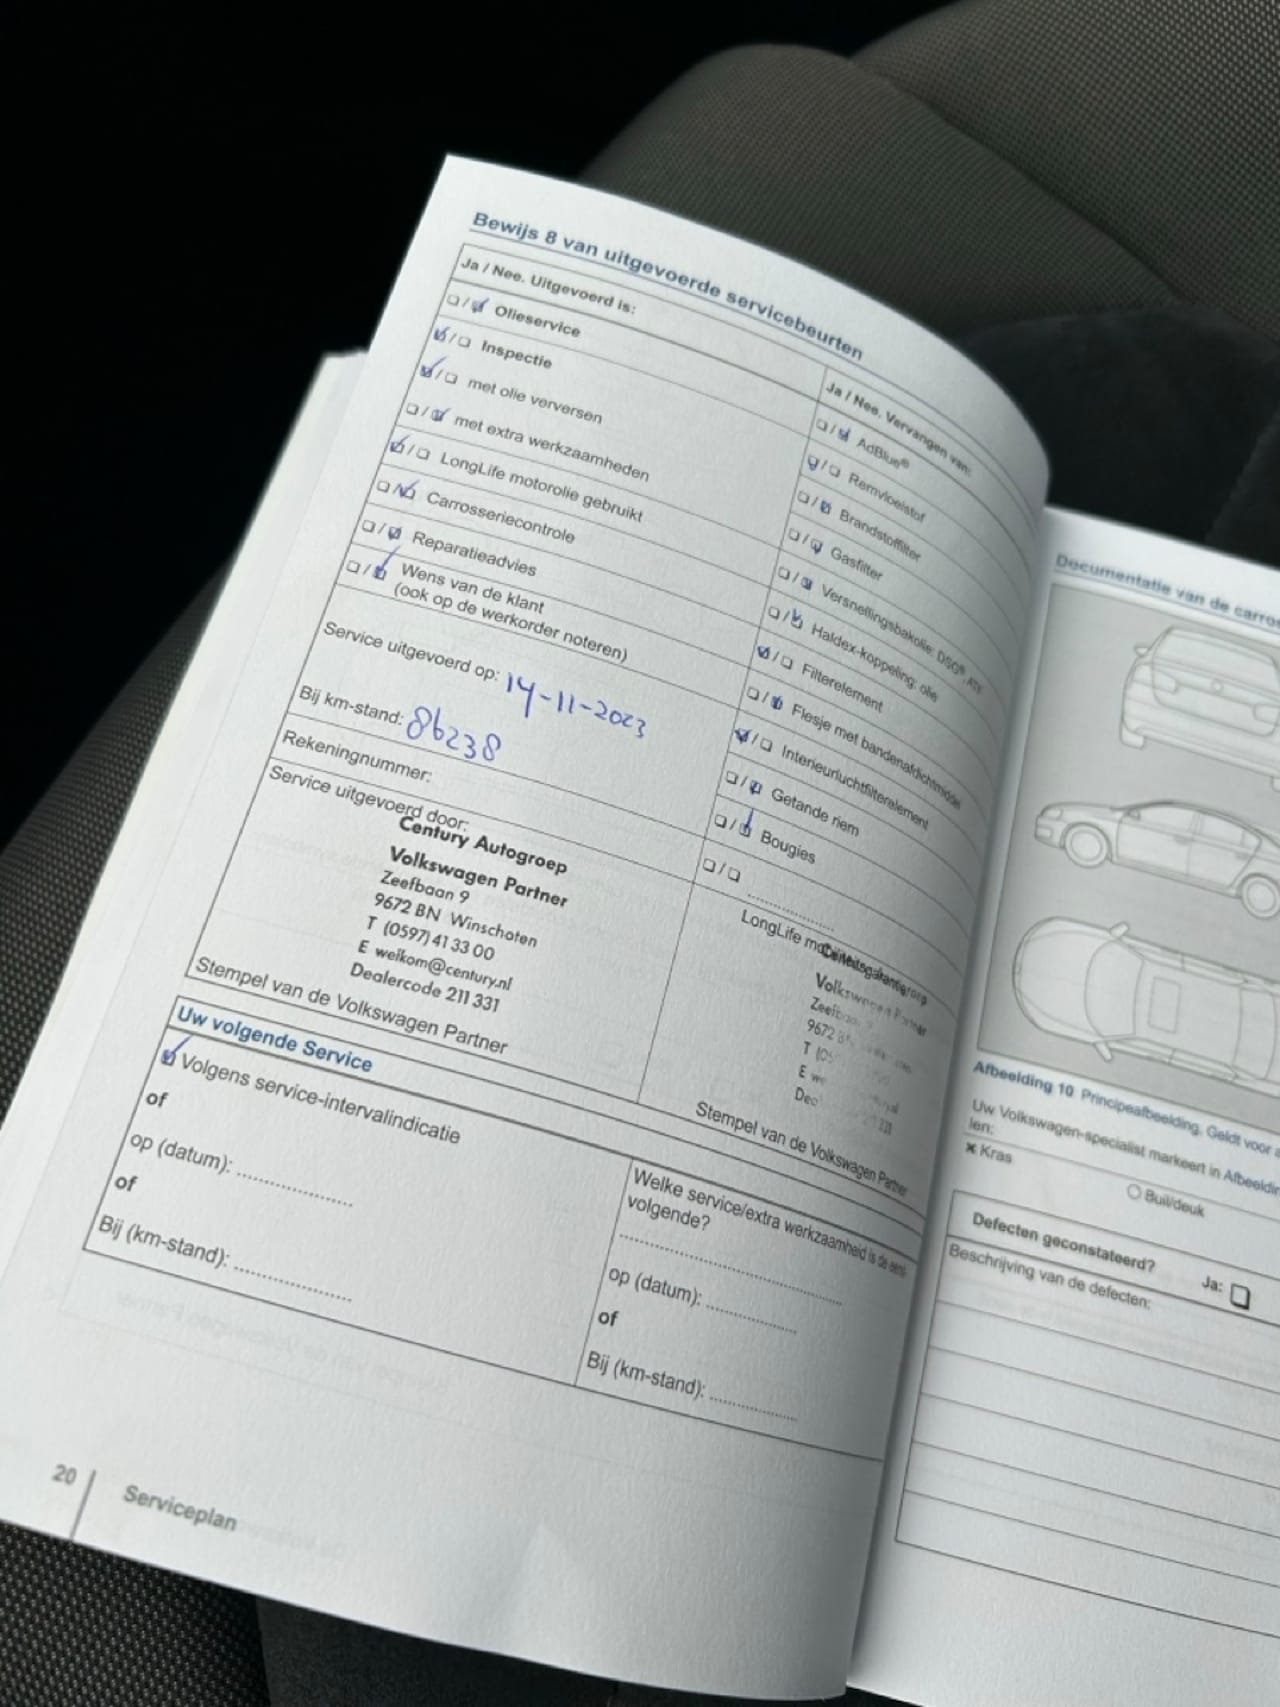 Bewijs 8 van uitgevoerde servicebeurten
Ja / Nee. Uitgevoerd is:
Olieservice
Inspectie
met olie verversen
met extra werkzaamheden
LongLife motorolie gebruikt
Carrosseriecontrole
Reparatieadvies
Wens van de klant
(ook op de werkorder noteren)
Service uitgevoerd op: 14-11-2023
Bij km-stand: 86238
Rekeningnummer:
Service uitgevoerd door:
Century Autogroep
Volkswagen Partner
Zeefbaan 9
9672 BN Winschoten
T (0597) 41 33 00
E welkom@century.nl
Dealercode 211 331
Stempel van de Volkswagen Partner
Ja / Nee. Vervangen van:
AdBlue®
Remvloeistof
Brandstoffilter
Gasfilter
Versnellingsbakolie: DSG®, AT6
Haldex-koppeling: olie
Filterelement
Flesje met bandenafdichtmiddel
Interieurluchtfilterelement
Getande riem
Bougies
LongLife
Volkswagen Partner
9672
T
E
331
Stempel van de Volkswagen Partner
Uw volgende Service
Volgens service-intervalindicatie
of
op (datum): ..................
of
Bij (km-stand): ..................
Welke service/extra werkzaamheid is de eerst-
volgende?
op (datum): ..................
of
Bij (km-stand): ..................
20
Serviceplan
Documentatie van de carros
Afbeelding 10 Principeafbeelding. Geldt voor
Uw Volkswagen-specialist markeert in Afbeeldin
len:
× Kras
Buil/deuk
Defecten geconstateerd?
Ja:
Beschrijving van de defecten: